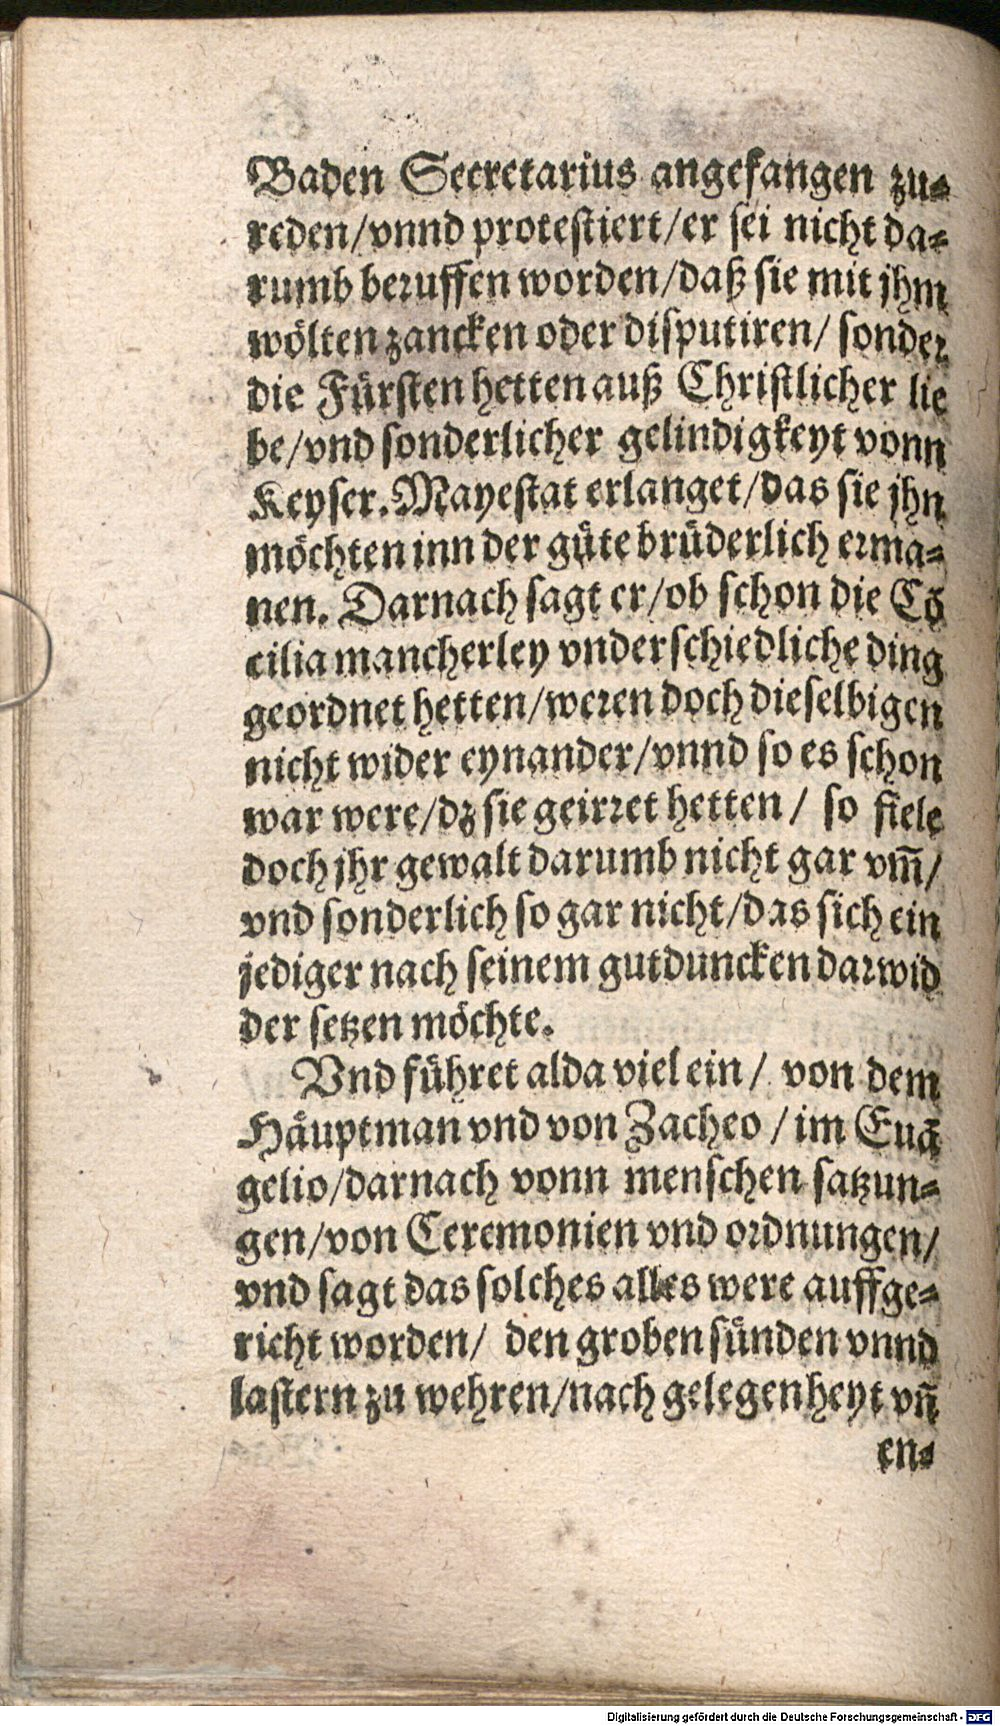 Baden Secretarius angefangen zu⸗
reden/vnnd protestiert/er sei nicht da⸗
rumb beruffen worden/daß sie mit jhm
wölten zancken oder disputiren/ sonder
die Fürsten hetten auß Christlicher lie
be/vnd sonderlicher gelindigkeyt vonn
Keyser. Mayestat erlanget/das sie jhn
möchten inn der güte brüderlich erma⸗
nen. Darnach sagt er/ob schon die Cō
cilia mancherley vnderschiedliche ding
geordnet hetten/weren doch dieselbigen
nicht wider eynander/vnnd so es schon
war were/dz sie geirret hetten/ so fiele
doch jhr gewalt darumb nicht gar vm̄/
vnd sonderlich so gar nicht/das sich ein
jediger nach seinem gutduncken darwid
der setzen möchte.
Vnd führet alda viel ein/ von dem
Häuptman vnd von Zacheo/im Euā
gelio/darnach vonn menschen satzun⸗
gen/von Ceremonien vnd ordnungen/
vnd sagt das solches alles were auffge⸗
richt worden/ den groben sünden vnnd
lastern zu wehren/nach gelegenheyt vn̄
en⸗
Digitalisierung gefördert durch die Deutsche Forschungsgemeinschaft - DFG